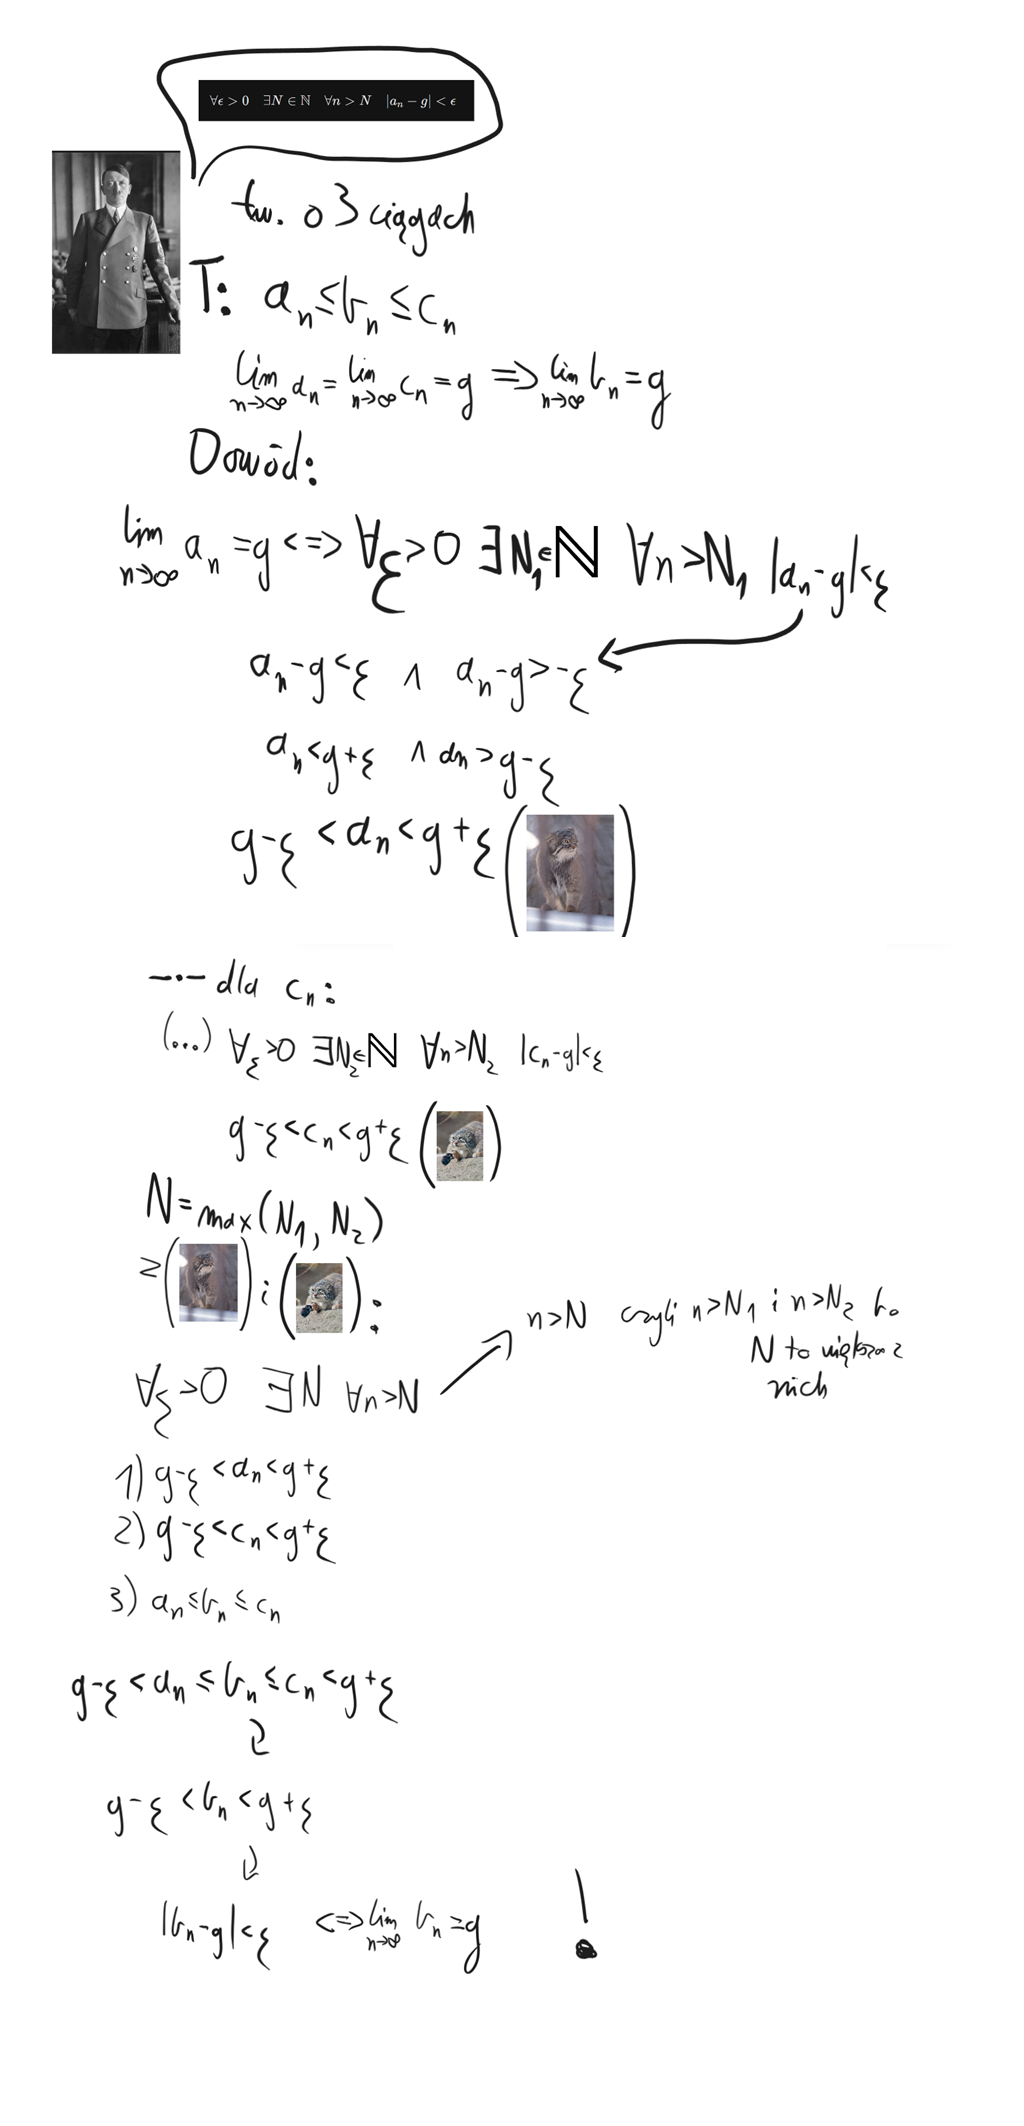 ∀ϵ > 0 ∃N ∈ ℕ ∀n > N |aₙ − g| < ϵ
tw. o 3 ciągach
T: aₙ ≤ bₙ ≤ cₙ
lim n→∞ aₙ = lim n→∞ cₙ = g ⇒ lim n→∞ bₙ = g
Dowód:
lim n→∞ aₙ = g <=> ∀ε>0 ∃N₁∈ℕ ∀n>N₁ |aₙ-g|<ε
aₙ-g<ε ∧ aₙ-g>-ε
aₙ<g+ε ∧ aₙ>g-ε
g-ε<aₙ<g+ε ( )
-·- dla cₙ:
(...) ∀ε>0 ∃N₂∈ℕ ∀n>N₂ |cₙ-g|<ε
g-ε<cₙ<g+ε ( )
N=max(N₁, N₂)
z ( ) i ( ):
n>N czyli n>N₁ i n>N₂ bo
N to większa z
nich
∀ε>0 ∃N ∀n>N
1) g-ε<aₙ<g+ε
2) g-ε<cₙ<g+ε
3) aₙ≤bₙ≤cₙ
g-ε<aₙ≤bₙ≤cₙ<g+ε
g-ε<bₙ<g+ε
|bₙ-g|<ε <=> lim n→∞ bₙ=g !